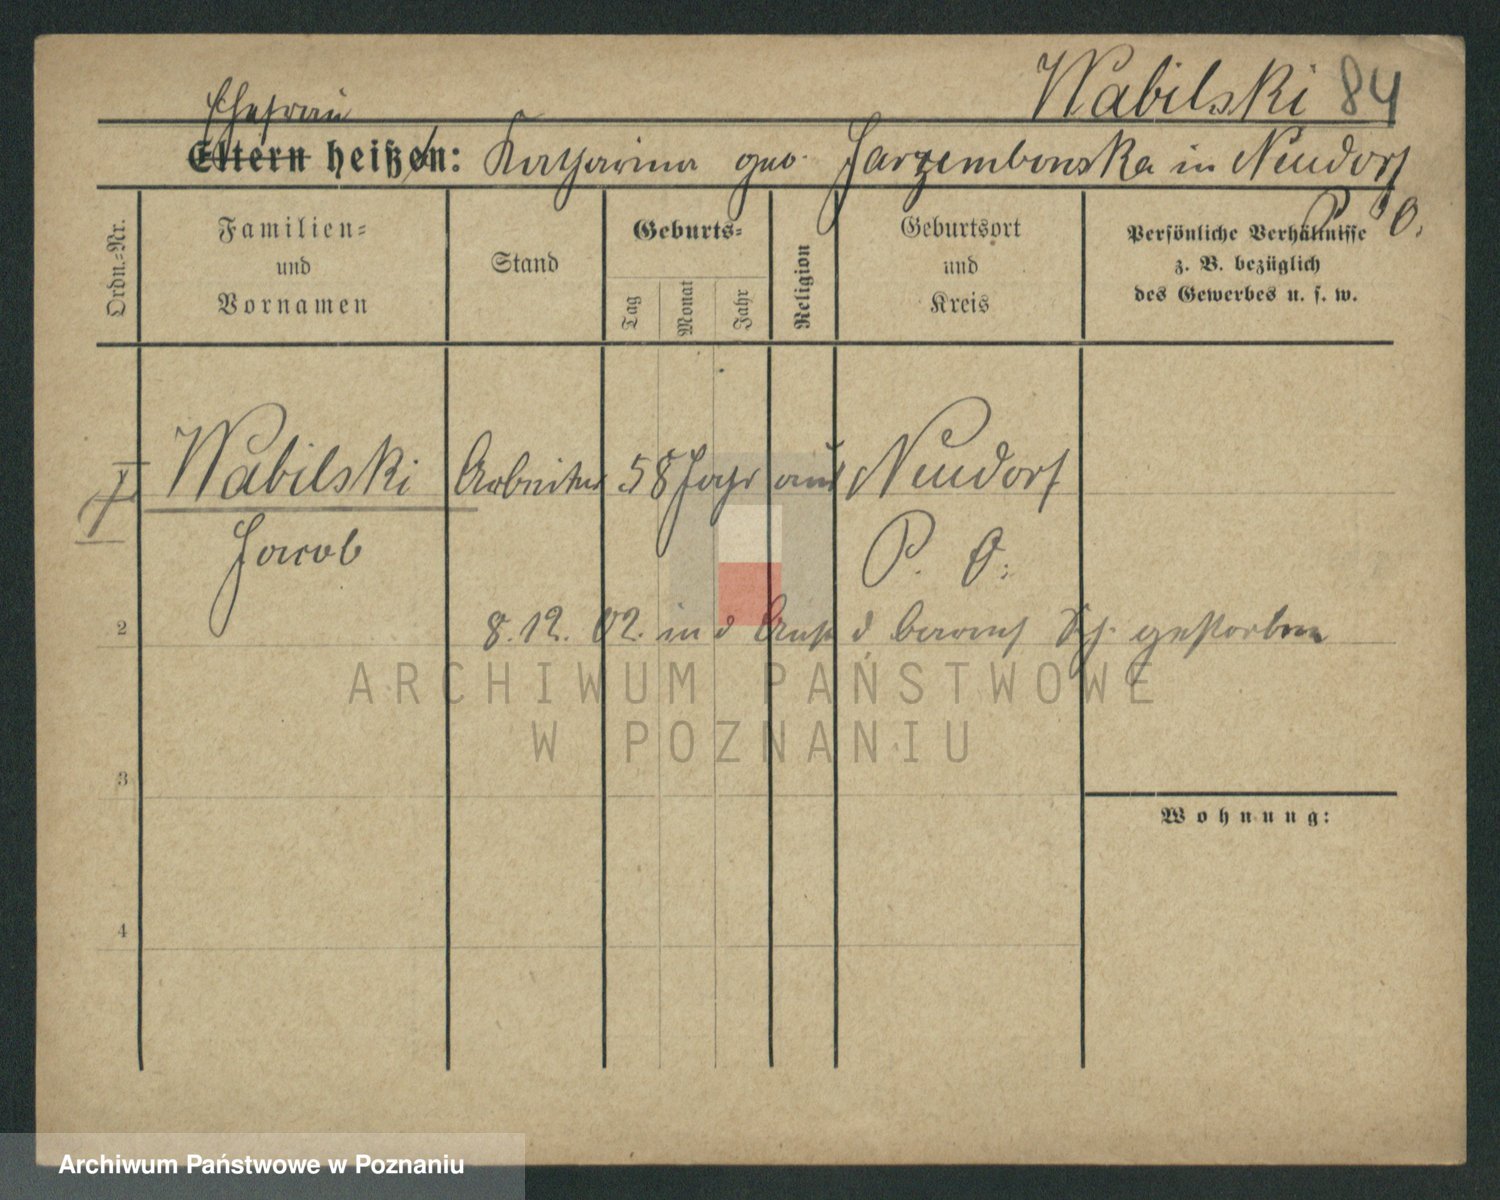 Wabilski 84
Ehefrau
Eltern heißen: Katharina geb. Jarzembowska in Neudorf
P. O.
Ordn.-Nr.
Familien- und Vornamen
Stand
Geburts-
Tag
Monat
Jahr
Religion
Geburtsort und Kreis
Persönliche Verhältnisse
z. B. bezüglich
des Gewerbes u. s. w.
Wabilski Arbeiter 58 Jahr aus Neudorf
Jacob P. O.
2 8. 12. 02. in d Anst d barmh Schw. gestorben
ARCHIWUM PAŃSTWOWE
W POZNANIU
3
Wohnung:
4
Archiwum Państwowe w Poznaniu